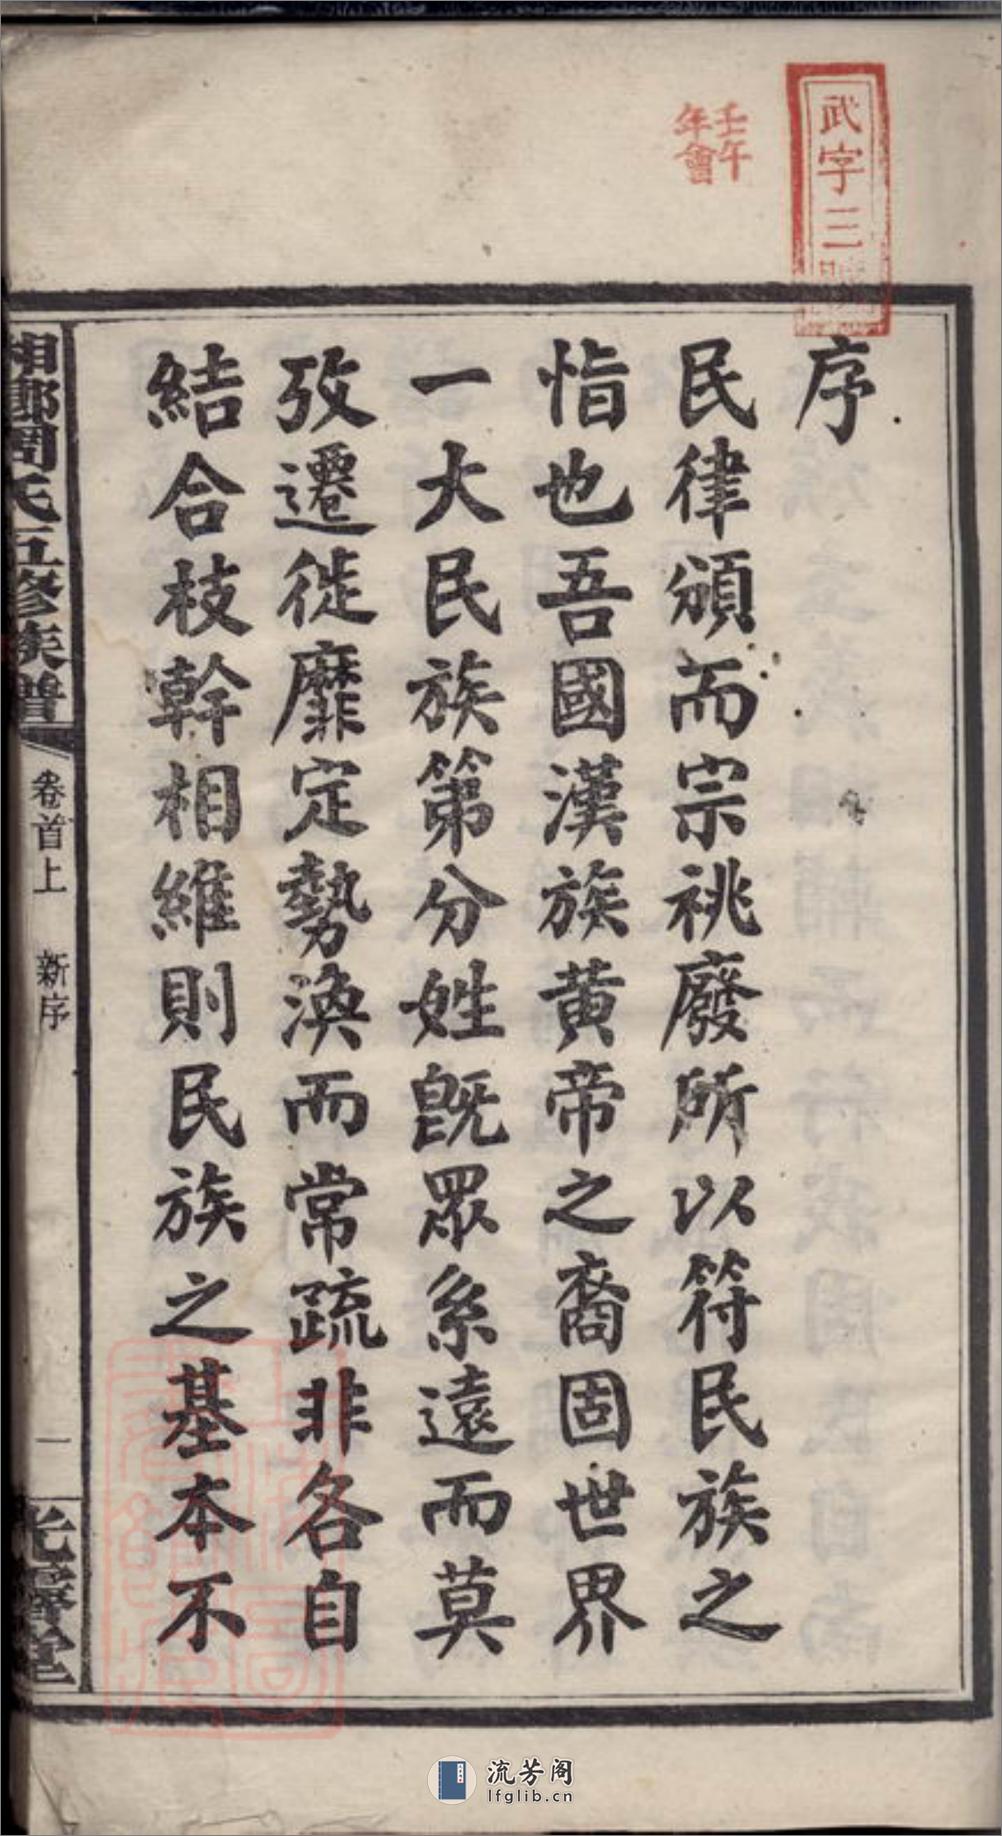 武字三號
壬午
年會
序
民律頒而宗祧廢所以符民族之
恉也吾國漢族黃帝之裔固世界
一大民族第分姓旣眾系遠而莫
攷遷徙靡定勢渙而常疏非各自
結合枝幹相維則民族之基本不
湘鄉周氏五修族譜
卷首上 新序
一
光霽堂
流芳阁
lfglib.cn